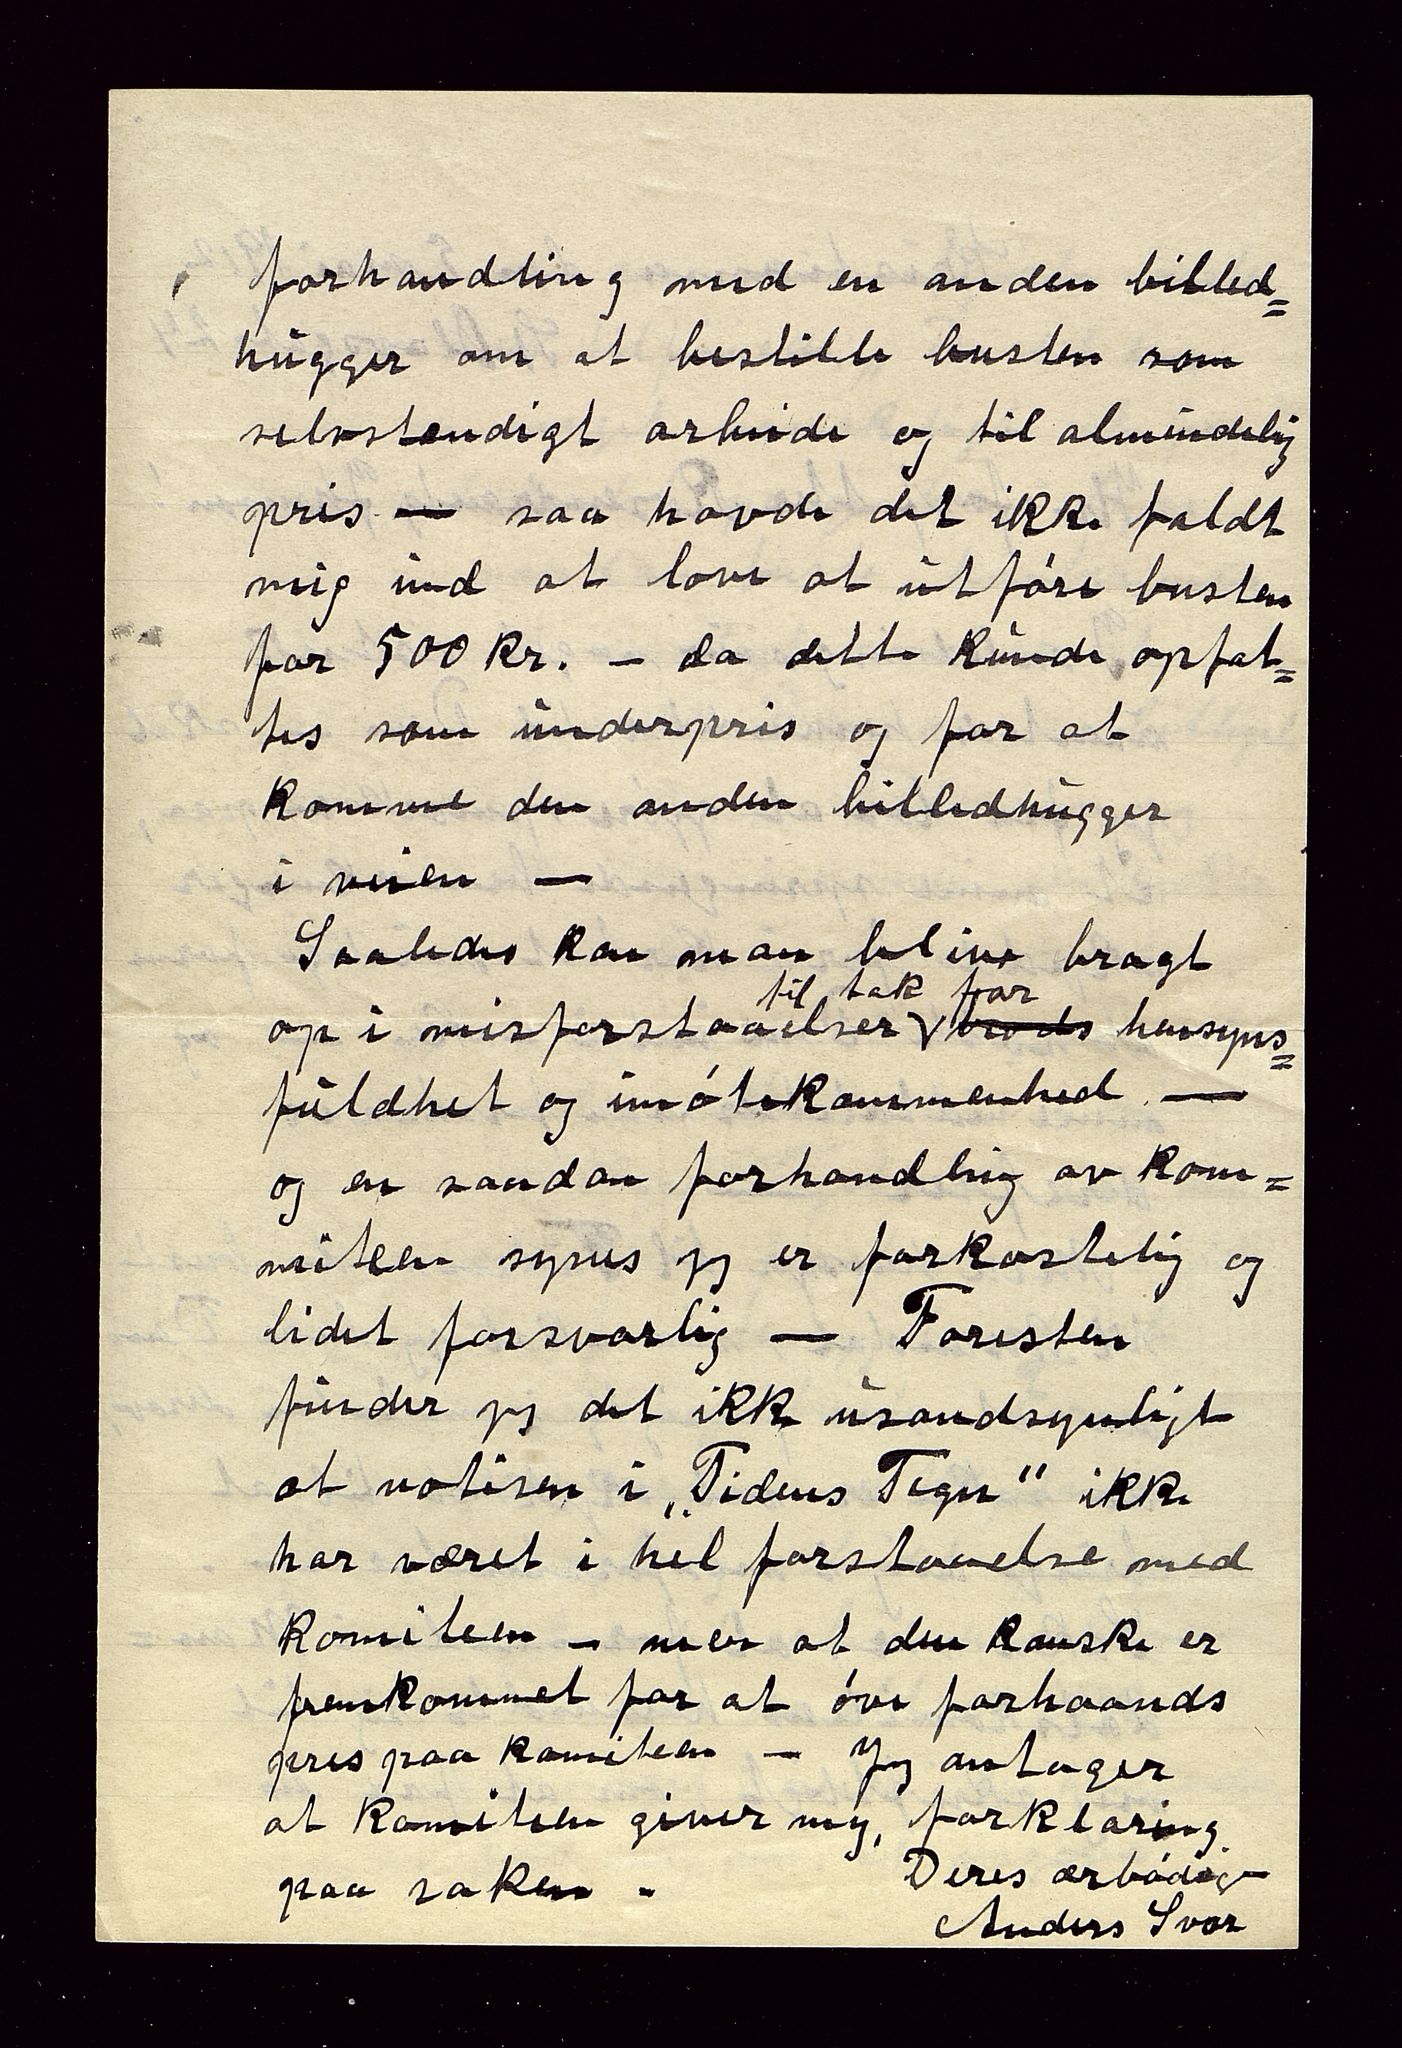 forhandling med en anden billed=
hugger om at bestille busten som
selvstændigt arbeide og til almindelig
pris — saa havde det ikke faldt
mig ind at love at utføre busten
for 500 kr. – da dette kunde opfat=
tes som underpris og for at
komme den anden billedhugger
i veien —
Saaledes kan man blive bragt
til tak for
op i misforstaaelser hensyns=
fuldhet og imøtekommenhed. —
og en saadan forhandling av kom=
miteen synes jeg er forkastelig og
lidet forsvarlig — Foresten
finder jeg det ikke usandsynligt
at notisen i „Tidens Tegn" ikke
har været i hel forstaaelse med
komiteen – men at den kanske er
fremkommet for at øve forhaands
pres paa komiteen – Jeg antager
at komiteen giver mig, forklaring
paa saken.
Deres ærbødige
Anders Svor